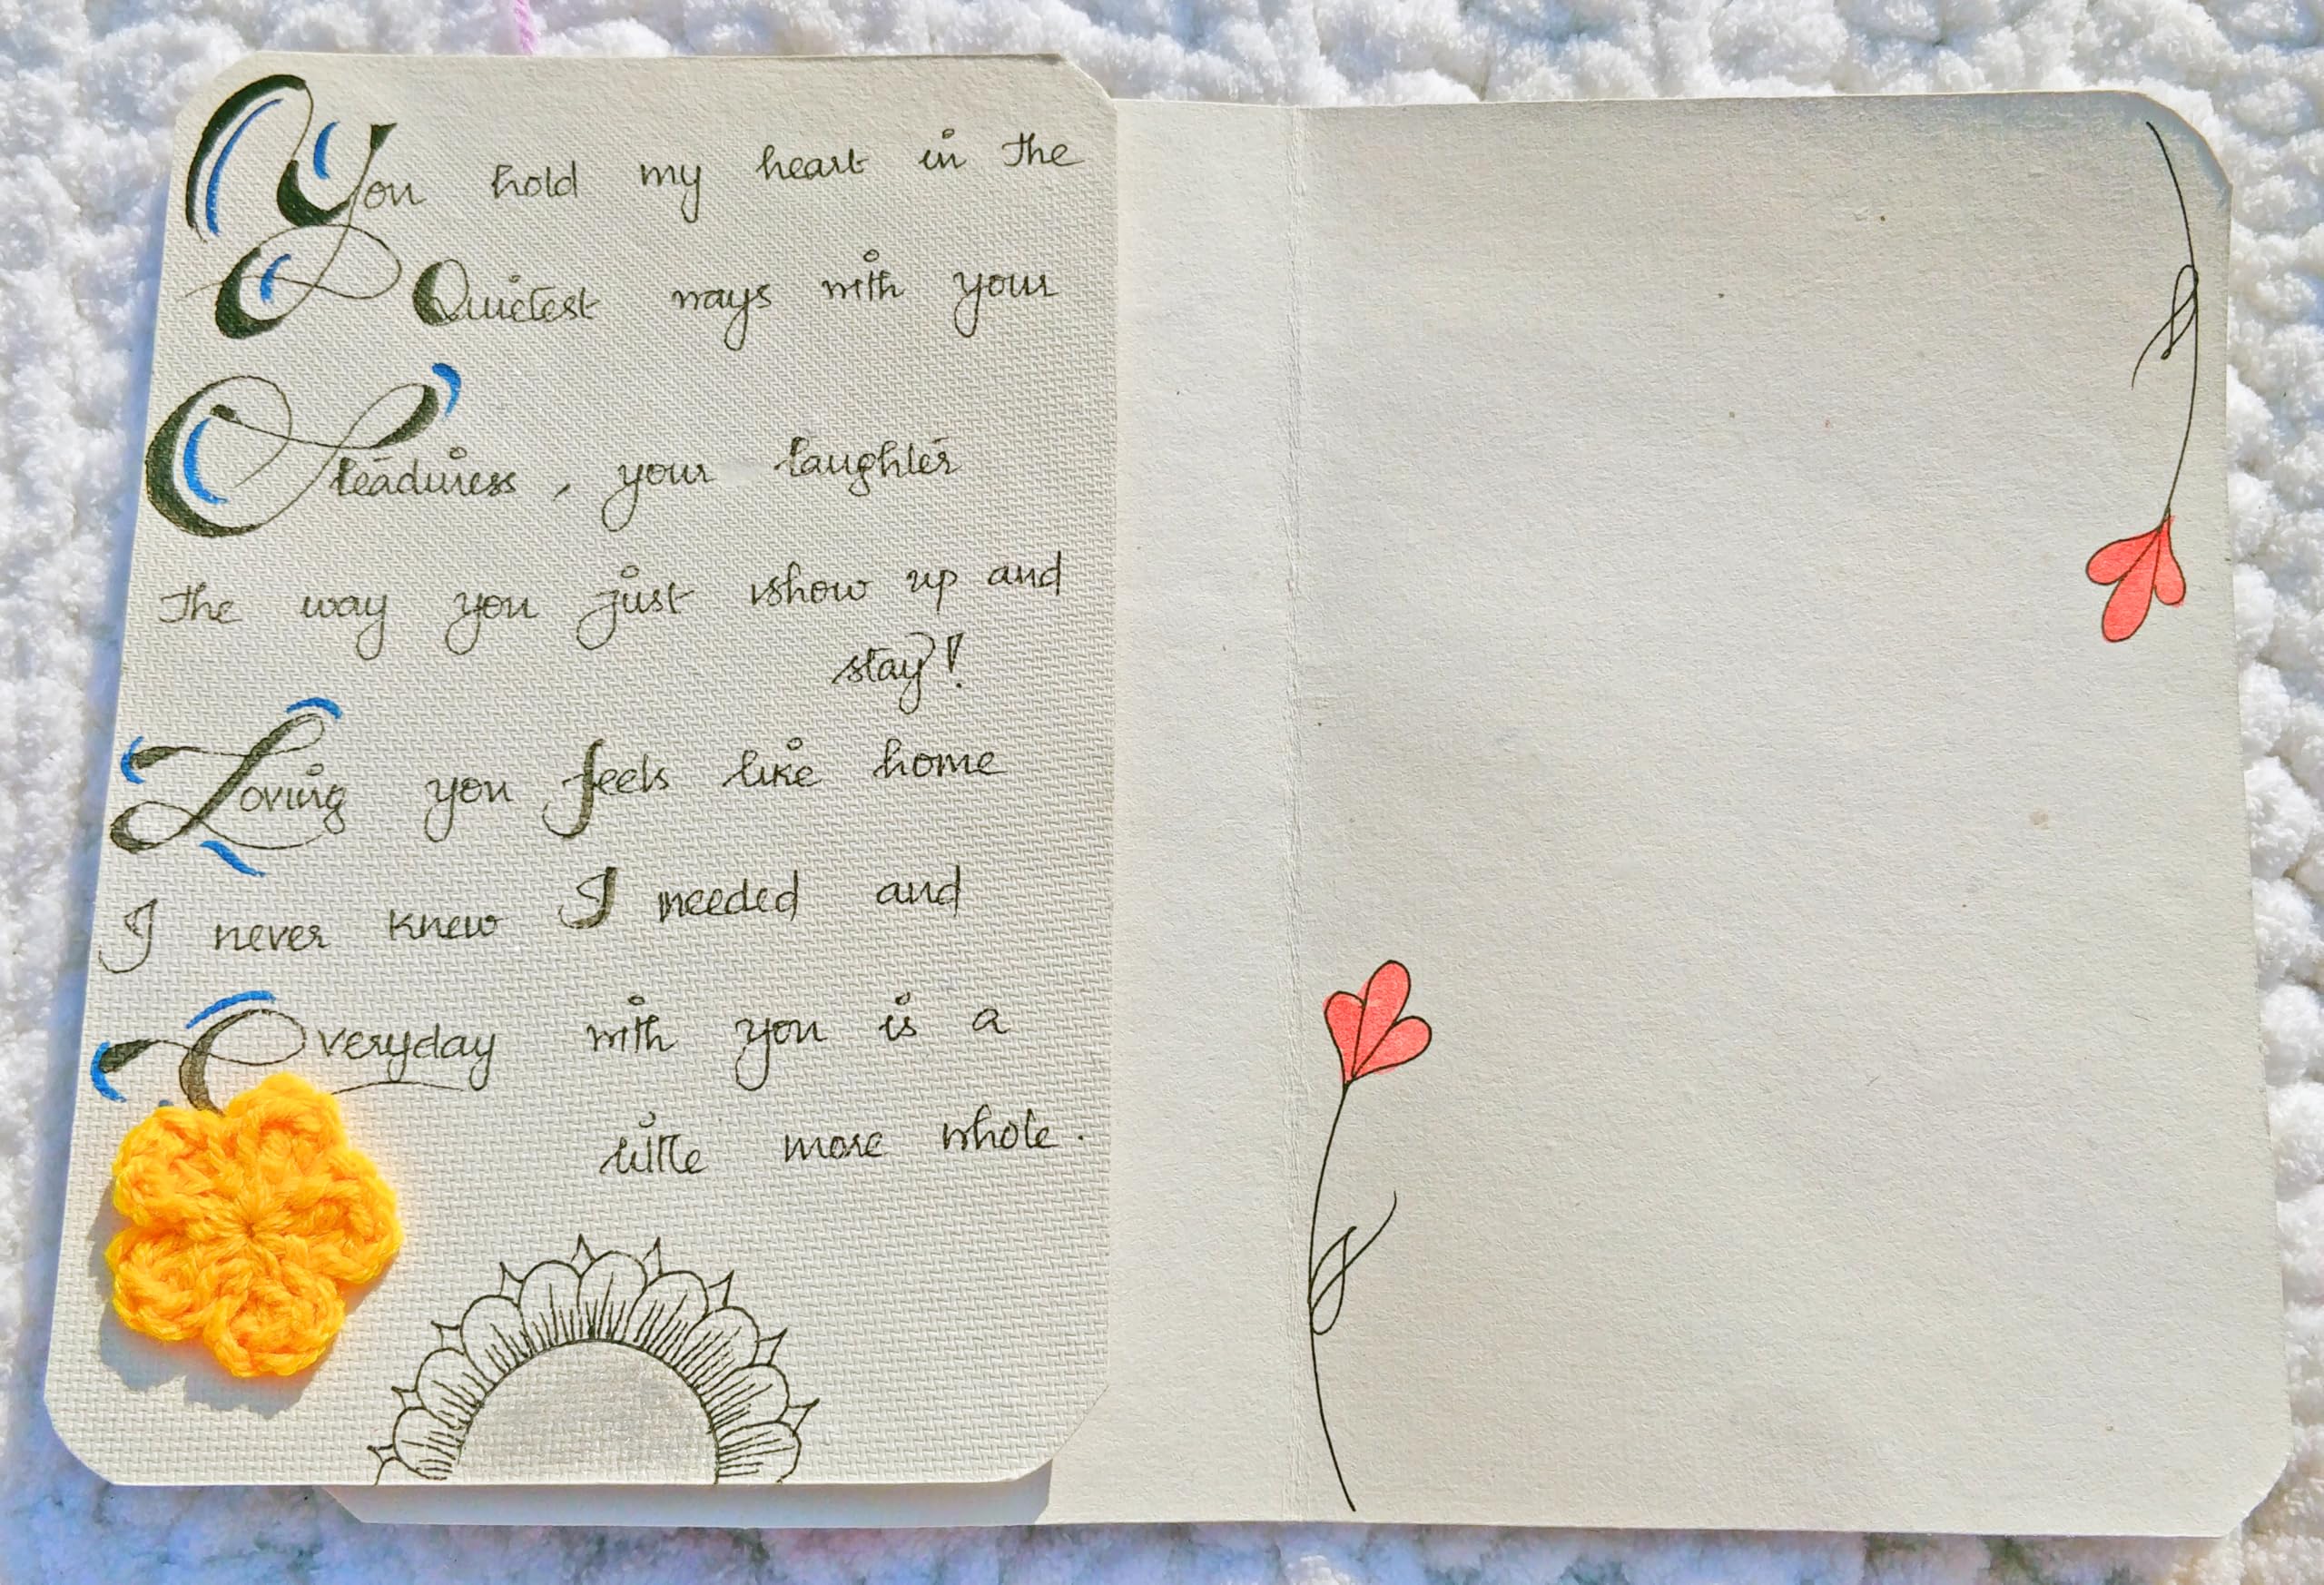 You hold my heart in the
Quietest ways with your
Steadiness, your laughter
the way you just show up and
stay!
Loving you feels like home
I never knew I needed and
Everyday with you is a
little more whole.